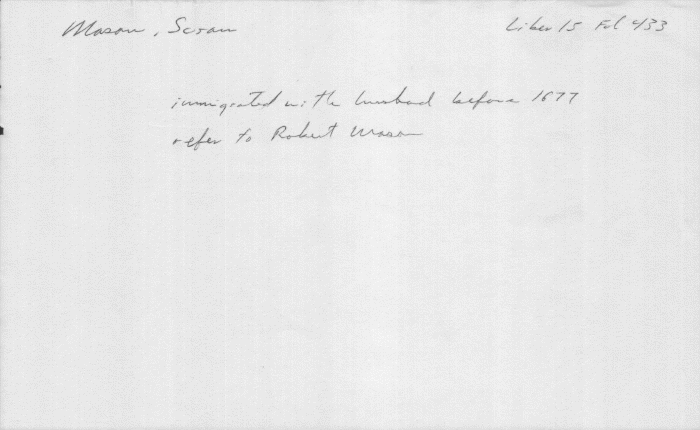 Mason, Susan Liber 15 Fol 433
immigrated with husband before 1677
refer to Robert Mason